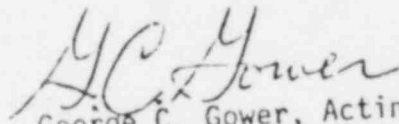 G.C. Gower
George C. Gower, Actin